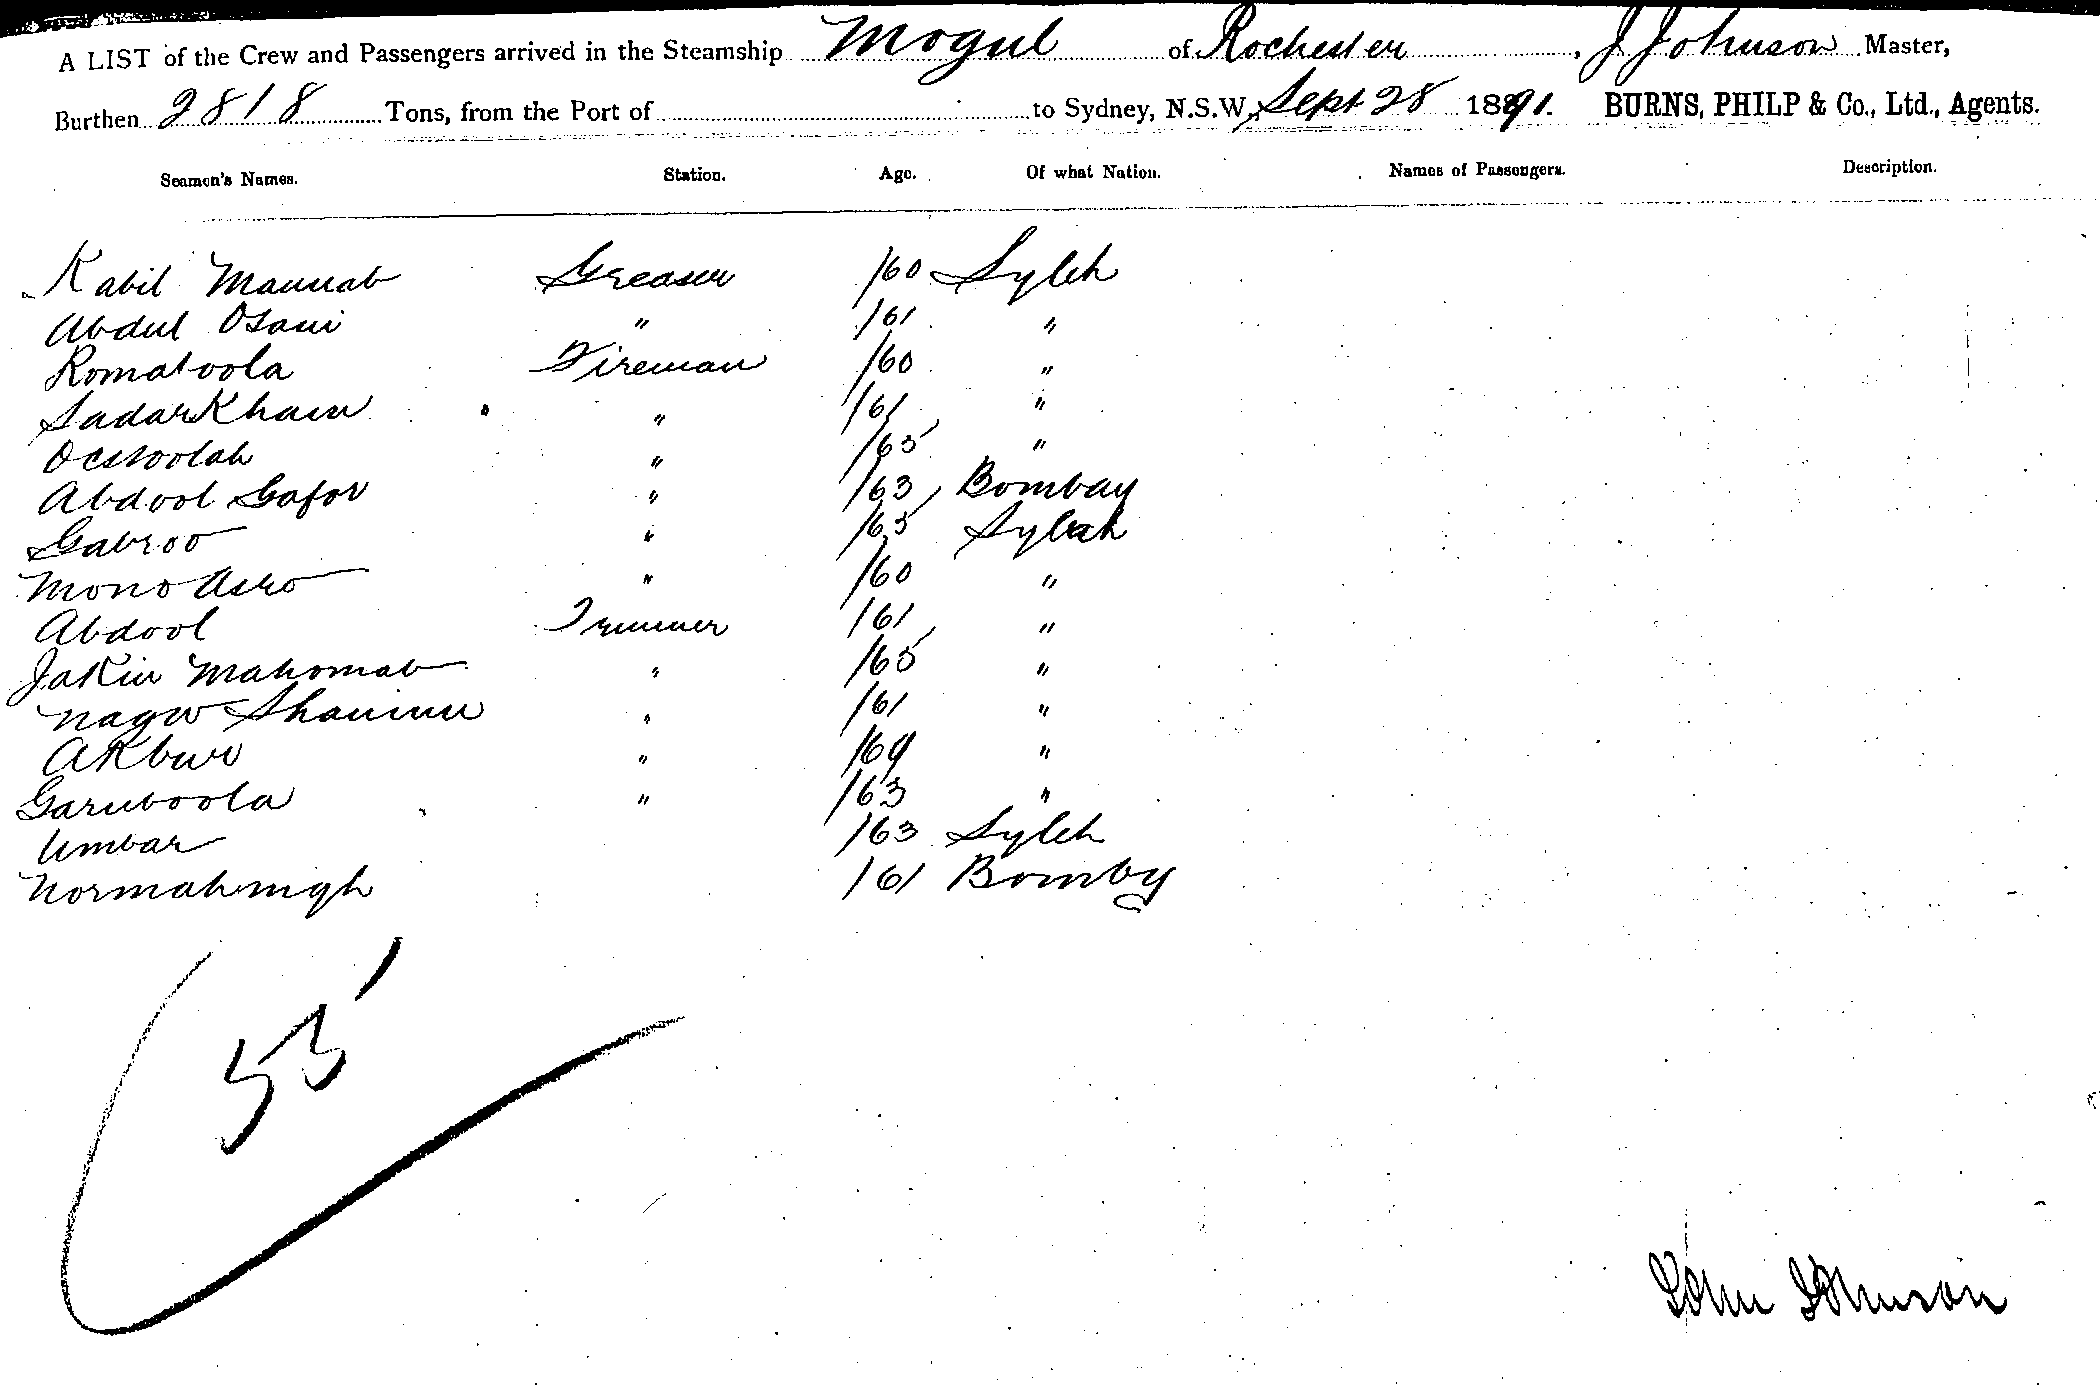 A LIST of the Crew and Passengers arrived in the Steamship Mogul of Rochester, J Johnson Master,
Burthen 2818 Tons, from the Port of to Sydney, N.S.W, Sept 28 1891. BURNS, PHILP & Co., Ltd., Agents.
Seamen's Names. Station. Age. Of what Nation. Names of Passengers. Description.
Kabil Mannab Greaser /60 Syleh
Abdul Osani " /61 "
Romatoola Fireman /60 "
Sadarkhan " /61 "
Ocstoolah " /65 "
Abdool Gafor " /63 Bombay
Gabroo " /65 Syleh
Mono Asro " /60 "
Abdool Trimmer /61 "
Jakin Mahomab " /65 "
Nagur " /61 "
Akbur " /69 "
Garuboola " /63 "
Umbar /63 Syleh
Normahmigh /61 Bomby
55
John Johnson